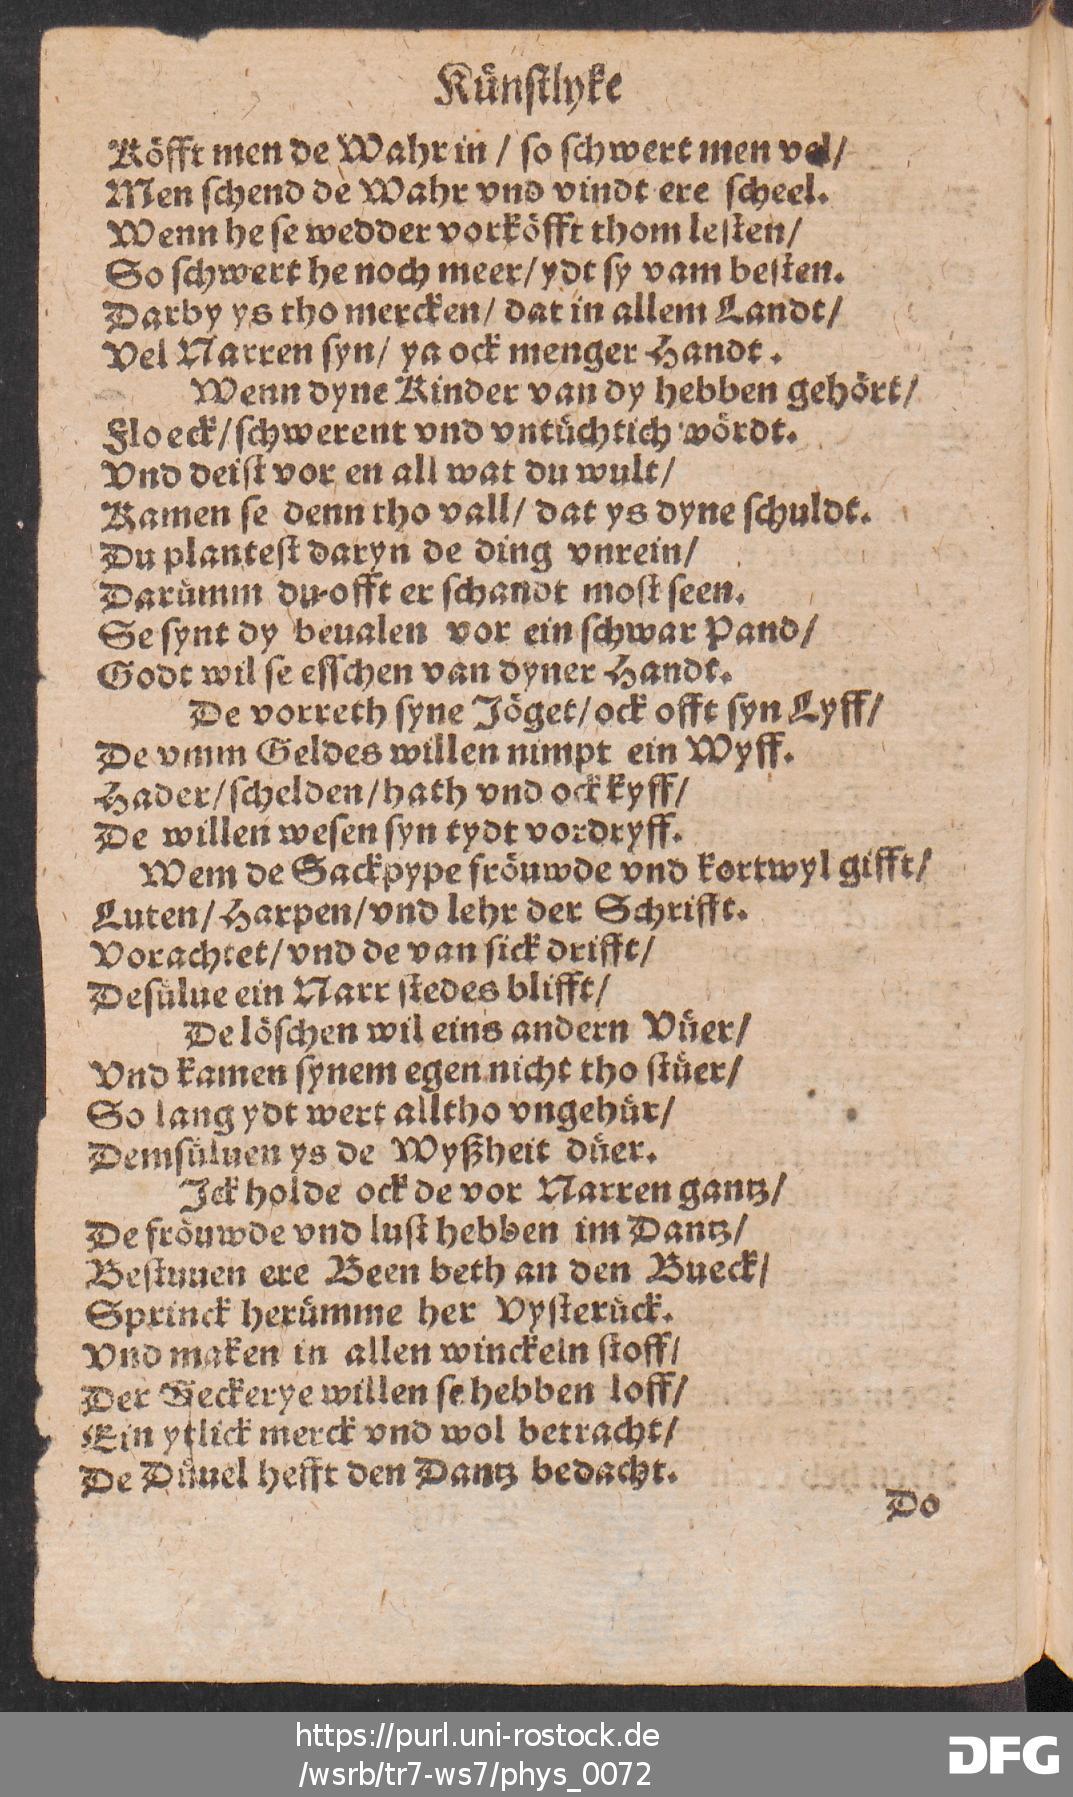 Künſtlyke
Köfft men de Wahr in / so ſchwert men vel/
Men ſchend de Wahr vnd vindt ere ſcheel.
Wenn he se wedder vorköfft thom leſten/
So ſchwert he noch meer/ ydt sy vam beſten.
Darby ys tho mercken/ dat in allem Landt/
Vel Narren syn/ ya ock menger Handt.
Wenn dyne Kinder van dy hebben gehört/
Floeck/ ſchwerent vnd vntüchtich wördt.
Vnd deiſt vor en all wat du wult/
Kamen se denn tho vall/ dat ys dyne ſchuldt.
Du planteſt daryn de ding vnrein/
Darümm du offt er ſchandt moſt seen.
Se synt dy beualen vor ein ſchwar Pand/
Godt wil se esſchen van dyner Handt.
De vorreth syne Jöget/ ock offt syn Lyff/
De vmm Geldes willen nimpt ein Wyff.
Hader/ ſchelden/ hath vnd ock kyff/
De willen wesen syn tydt vordryff.
Wem de Sackpype fröuwde vnd kortwyl gifft/
Luten/ Harpen/ vnd lehr der Schrifft.
Vorachtet/ vnd de van sick drifft/
Desülue ein Narr ſtedes blifft/
De löſchen wil eins andern Vüer/
Vnd kamen synem egen nicht tho ſtüer/
So lang ydt wert alltho vngehür/
Demsüluen ys de Wyßheit düer.
Jck holde ock de vor Narren gantz/
De fröuwde vnd luſt hebben im Dantz/
Beſtuuen ere Been beth an den Bueck/
Sprinck herümme her Vyſterück.
Vnd maken in allen winckeln ſtoff/
Der Geckerye willen se hebben loff/
Ein ytlick merck vnd wol betracht/
De Düuel hefft den Dantz bedacht.
Do
https://purl.uni-rostock.de
/wsrb/tr7-ws7/phys_0072
DFG